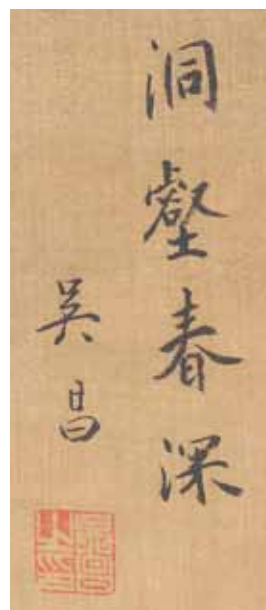 洞壑春深
吳昌